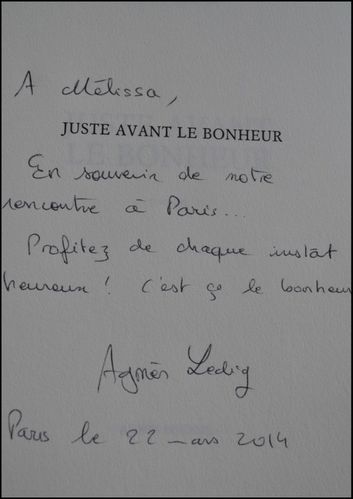 A Mélissa,
JUSTE AVANT LE BONHEUR
En souvenir de notre
rencontre à Paris...
Profitez de chaque instat
heureux ! C'est ça le bonheur
Agnès Ledig
Paris le 22 mars 2014